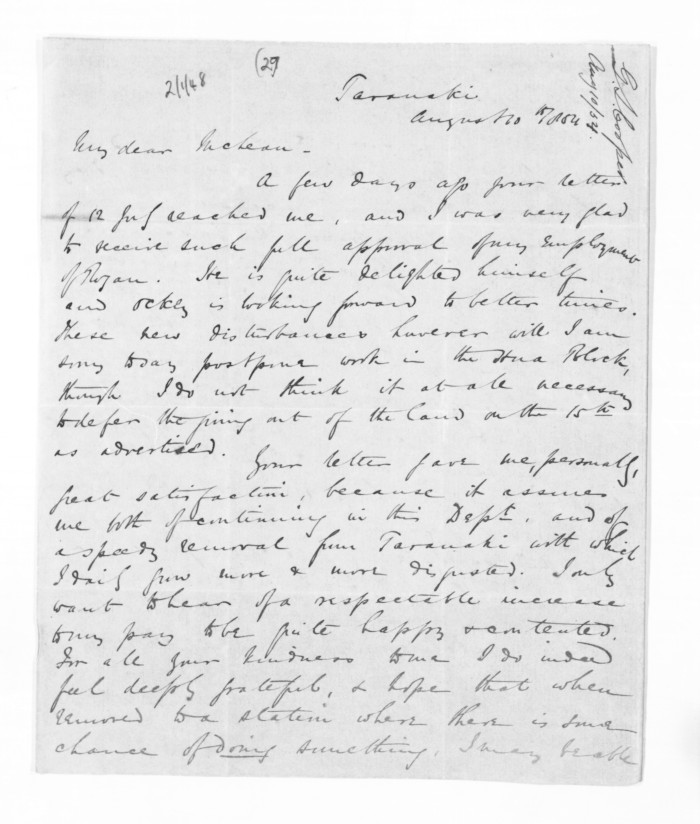 (29)
2/1/48
G. S. Cooper
Aug 10/54.
Taranaki
August 10th 1854
My dear McLean -
A few days ago your letter
of 12 July reached me, and I was very glad
to receive such full approval of my employment
of Rogan. He is quite delighted himself
and is looking forward to better times.
These new disturbances however will I am
sorry to say postpone work in the Hua Block,
though I do not think it at all necessary
to defer the giving out of the land on the 15th
as advertised.
Your letter gave me, personally,
great satisfaction, because it assures
me both of continuing in this Dept. and of
a speedy removal from Taranaki with which
I daily grow more & more disgusted. I only
want to hear of a respectable increase
to my pay to be quite happy & contented.
For all your kindness to me I do indeed
feel deeply grateful, & hope that when
removed to a station where there is some
chance of doing something, I may be able